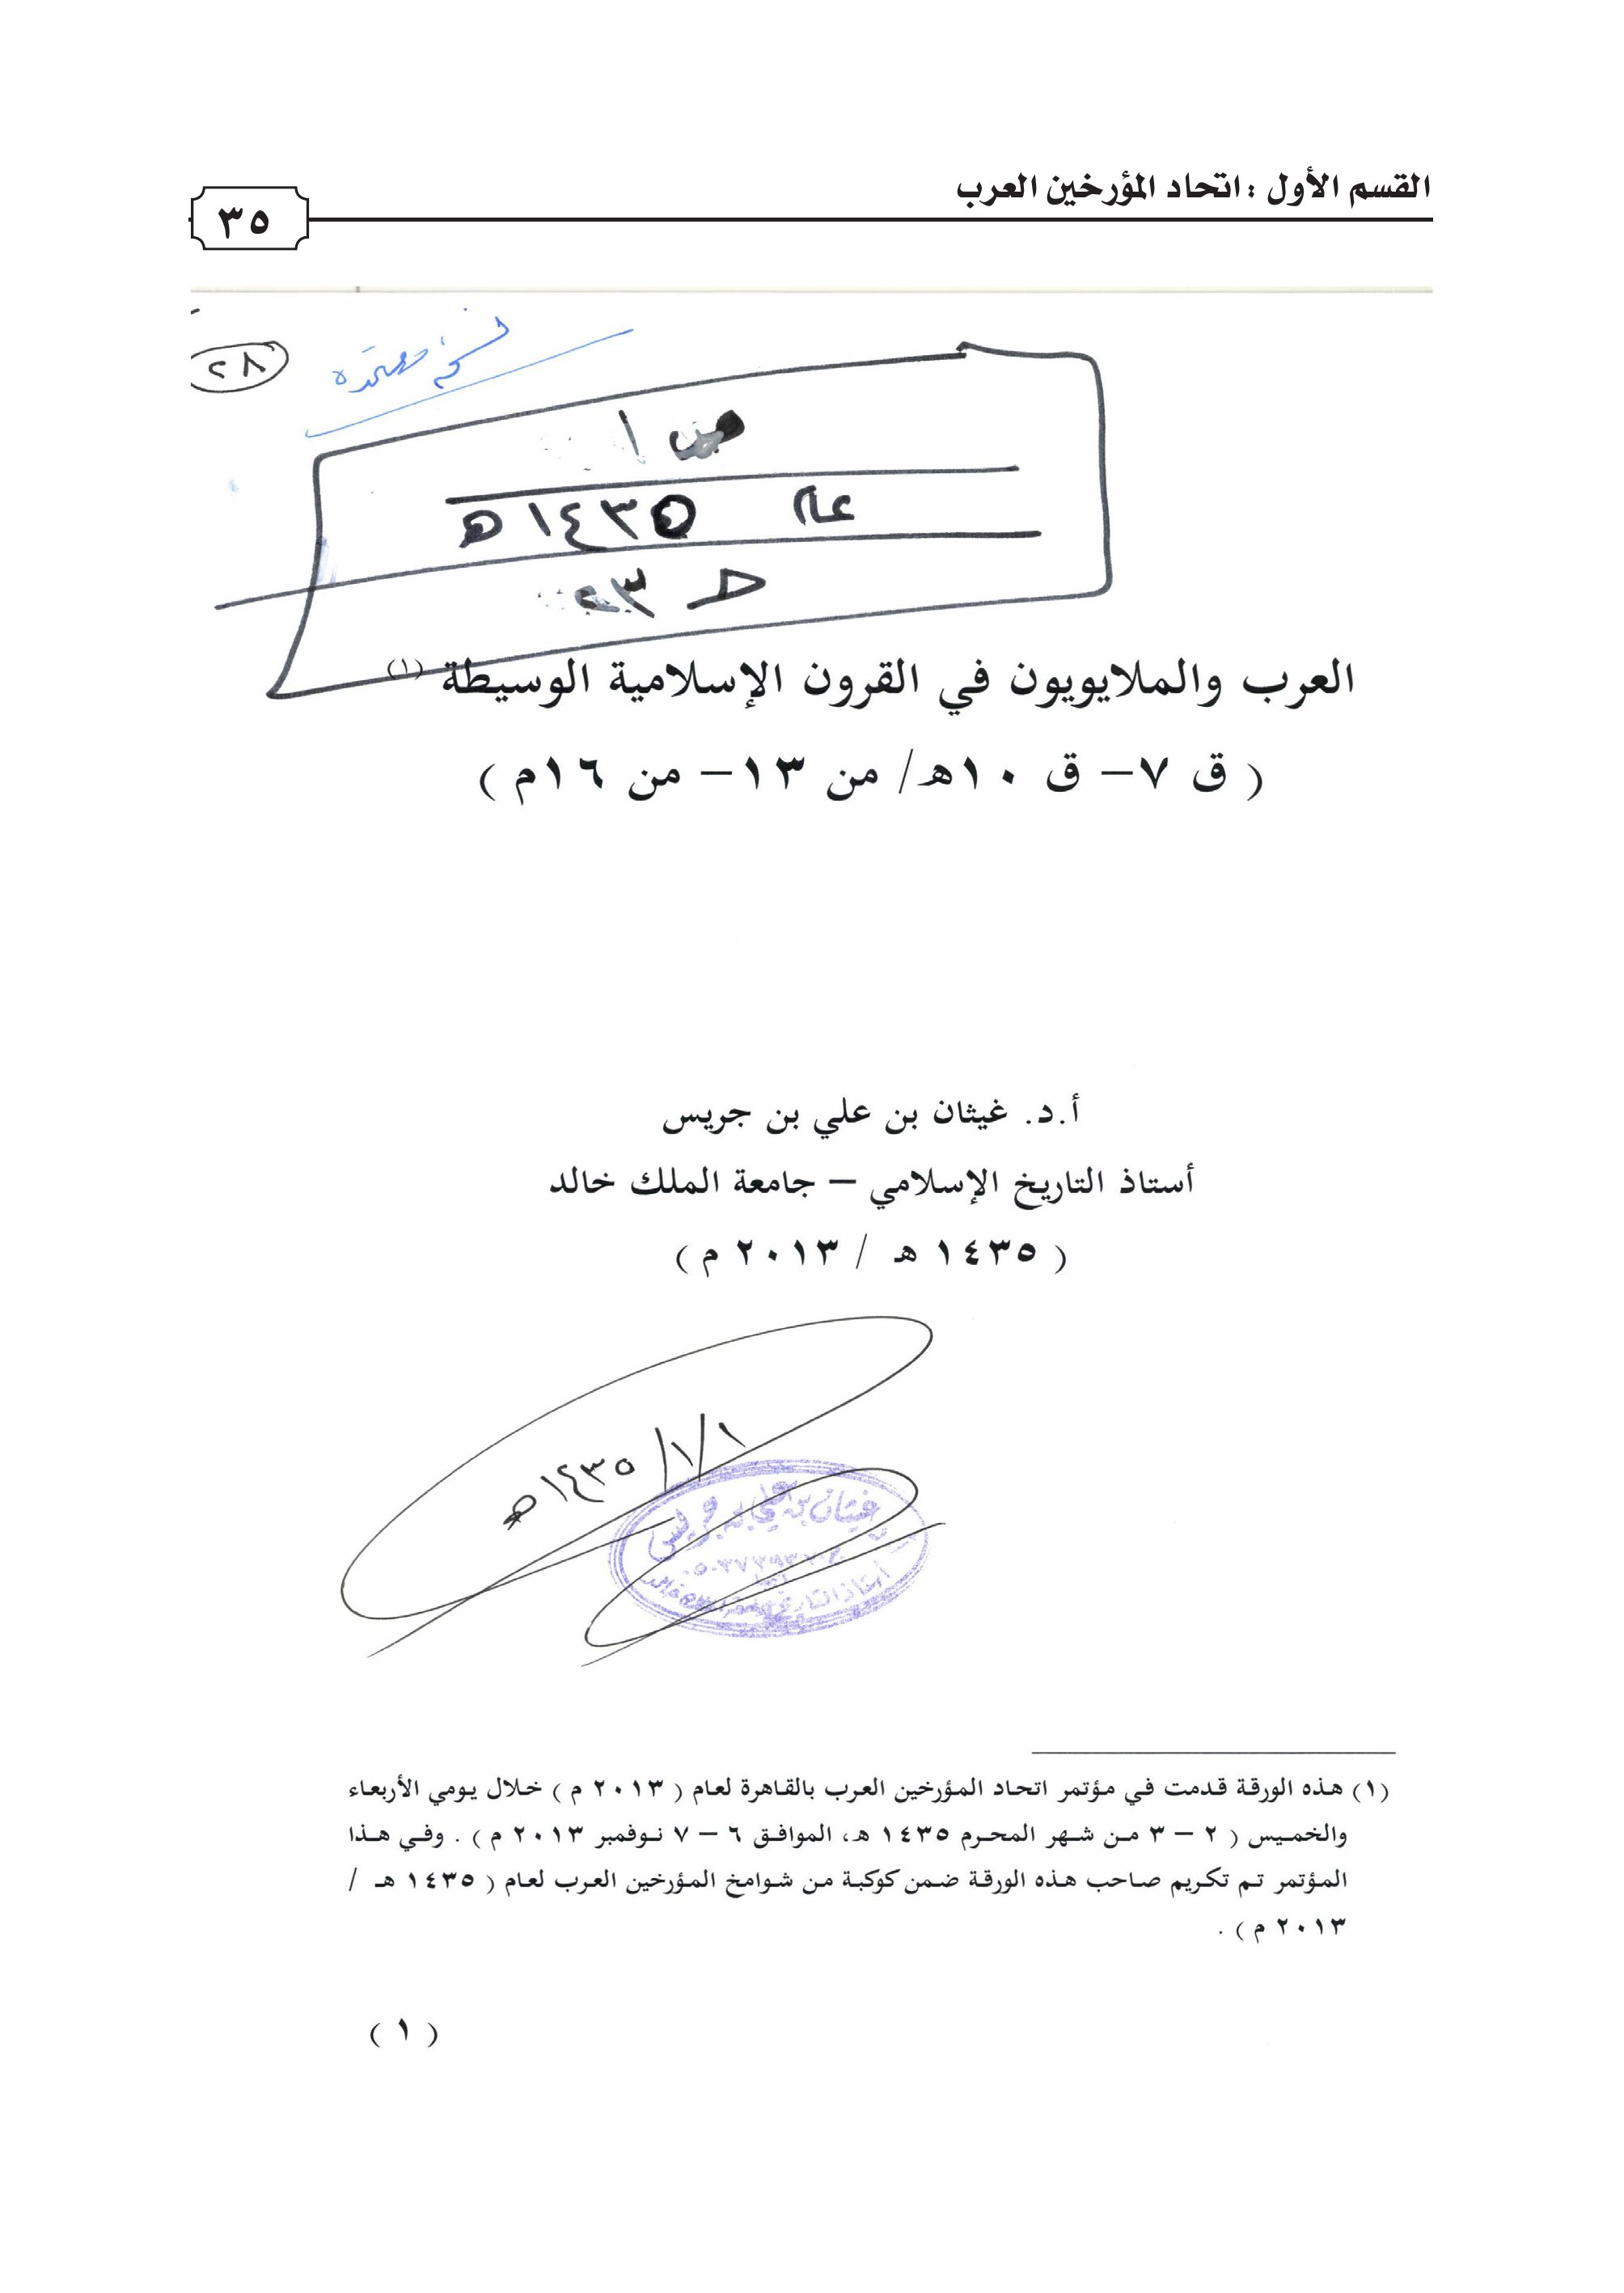 القسم الأول : اتحاد المؤرخين العرب
٣٥
٢٨
نسخة معتمدة
ص ١
عام ١٤٣٥هـ
العرب والملايويون في القرون الإسلامية الوسيطة (١)
( ق ٧– ق ١٠هـ/ من ١٣– من ١٦م )
أ.د. غيثان بن علي بن جريس
أستاذ التاريخ الإسلامي – جامعة الملك خالد
( ١٤٣٥ هـ / ٢٠١٣ م )
١/١/١٤٣٥هـ
غيثان بن علي بن جريس
(١) هذه الورقة قدمت في مؤتمر اتحاد المؤرخين العرب بالقاهرة لعام ( ٢٠١٣ م ) خلال يومي الأربعاء
والخميس ( ٢ – ٣ من شهر المحرم ١٤٣٥ هـ، الموافق ٦ – ٧ نوفمبر ٢٠١٣ م ) . وفي هذا
المؤتمر تم تكريم صاحب هذه الورقة ضمن كوكبة من شوامخ المؤرخين العرب لعام ( ١٤٣٥ هـ /
٢٠١٣ م ) .
( ١ )